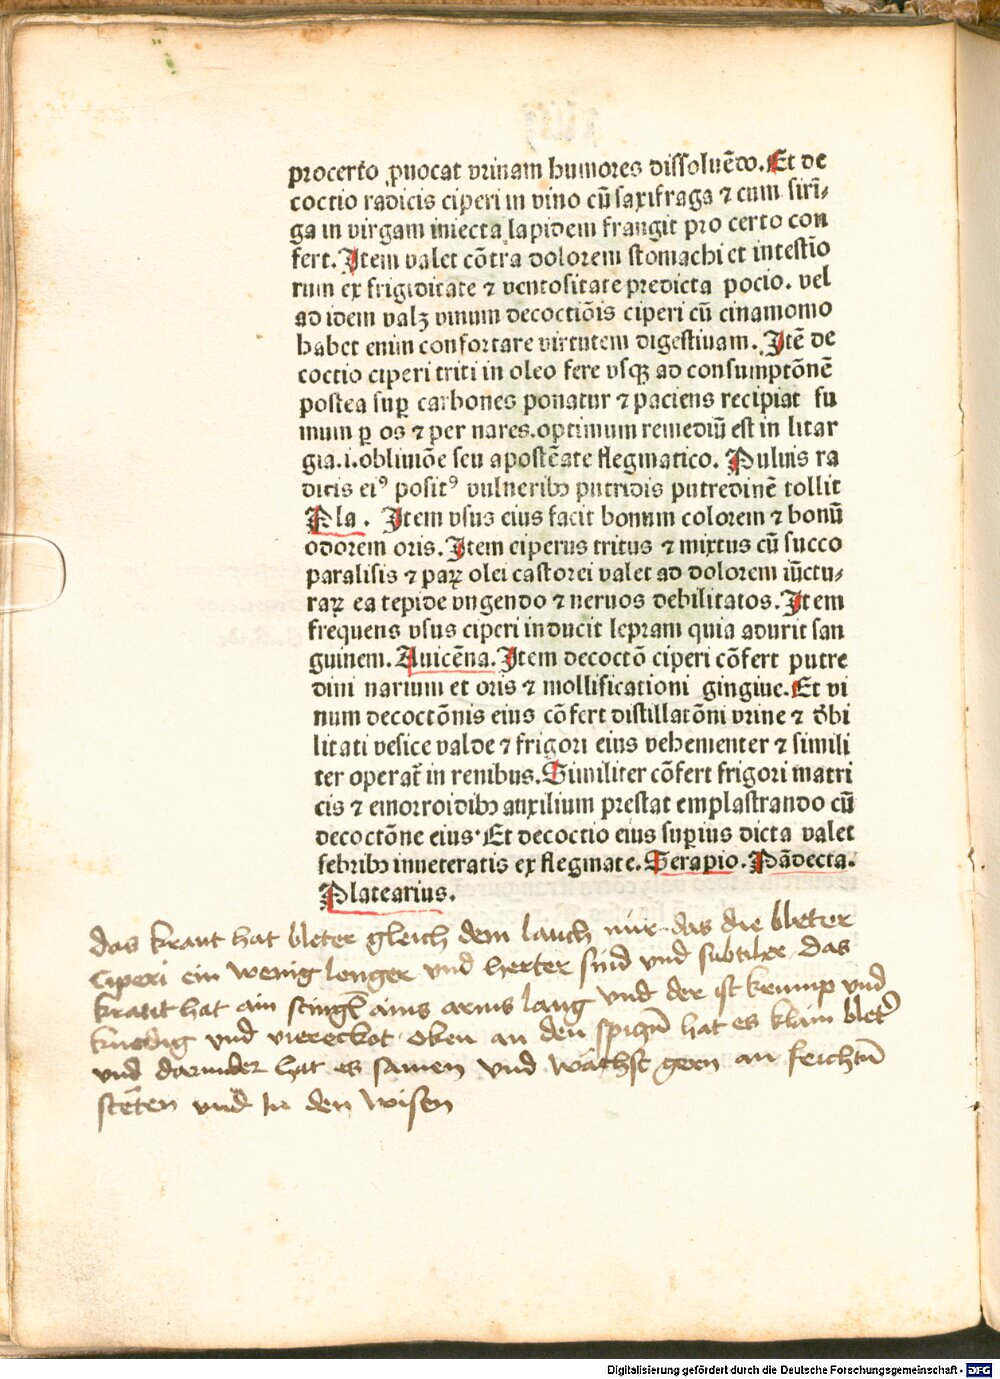 procerto ꝓuocat vrinam humores dissoluēdo. Et de
coctio radicis ciperi in vino cū saxifraga ⁊ cum sirī-
ga in virgam iniecta lapidem frangit pro certo con
fert. Item valet cōtra dolorem stomachi et intestīo
rum ex frigiditate ⁊ ventositate predicta pocio. vel
ad idem valꝫ vinum decoctiōis ciperi cū cinamomo
habet enim confortare virtutem digestiuam. Itē de
coctio ciperi triti in oleo fere vsqꝫ ad consumptōnē
postea suꝑ carbones ponatur ⁊ paciens recipiat fu
mum ꝑ os ⁊ per nares. optimum remediū est in litar
gia .i. obliuiōe seu apostēate flegmatico. Puluis ra
dicis eiꝰ positꝰ vulneribꝫ putridis putredinē tollit
Pla. Item vsus eius facit bonum colorem ⁊ bonū
odorem oris. Item ciperus tritus ⁊ mixtus cū succo
paralisis ⁊ paꝝ olei castorei valet ad dolorem iūctu-
raꝝ ea tepide vngendo ⁊ neruos debilitatos. Item
frequens vsus ciperi inducit lepram quia adurit san
guinem. Auicēna. Item decoctō ciperi cōfert putre
dini narium et oris ⁊ mollificationi gingiue. Et vi
num decoctōnis eius cōfert distillatōni vrine ⁊ dēbi
litati vesice valde ⁊ frigori eius vehementer ⁊ simili
ter operat̄ in renibus. Similiter cōfert frigori matri
cis ⁊ emorroidibꝫ auxilium prestat emplastrando cū
decoctōne eius. Et decoctio eius superius dicta valet
febribꝫ inueteratis ex flegmate. Serapio. Pādecta.
Platearius.
das kraut hat bleter gleich dem lauch nur das die bleter
Ciperi ein wenig lenger vnd herter sind vnd subtiler das
kraut hat ain stingl ains arms lang vnd der ist krump vnd
knodig vnd viereckot. oben an den spiczn̄ hat es klain blet̄
vnd darunder hat es samen vnd wachst gern an feichtn̄
steten vnd In den wisen
Digitalisierung gefördert durch die Deutsche Forschungsgemeinschaft - DFG